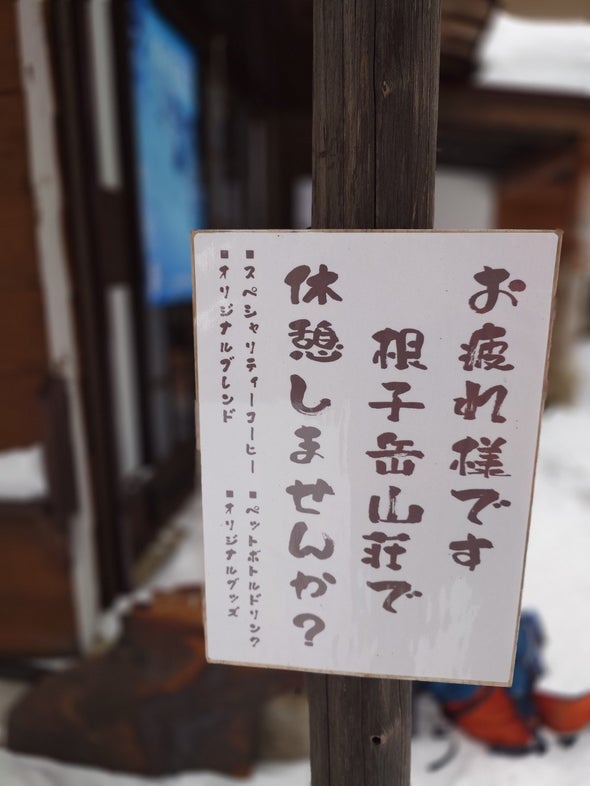 お疲れ様です
根子岳山荘で
休憩しませんか?
■スペシャリティーコーヒー ■ペットボトルドリンク
■オリジナルブレンド ■オリジナルグッズ